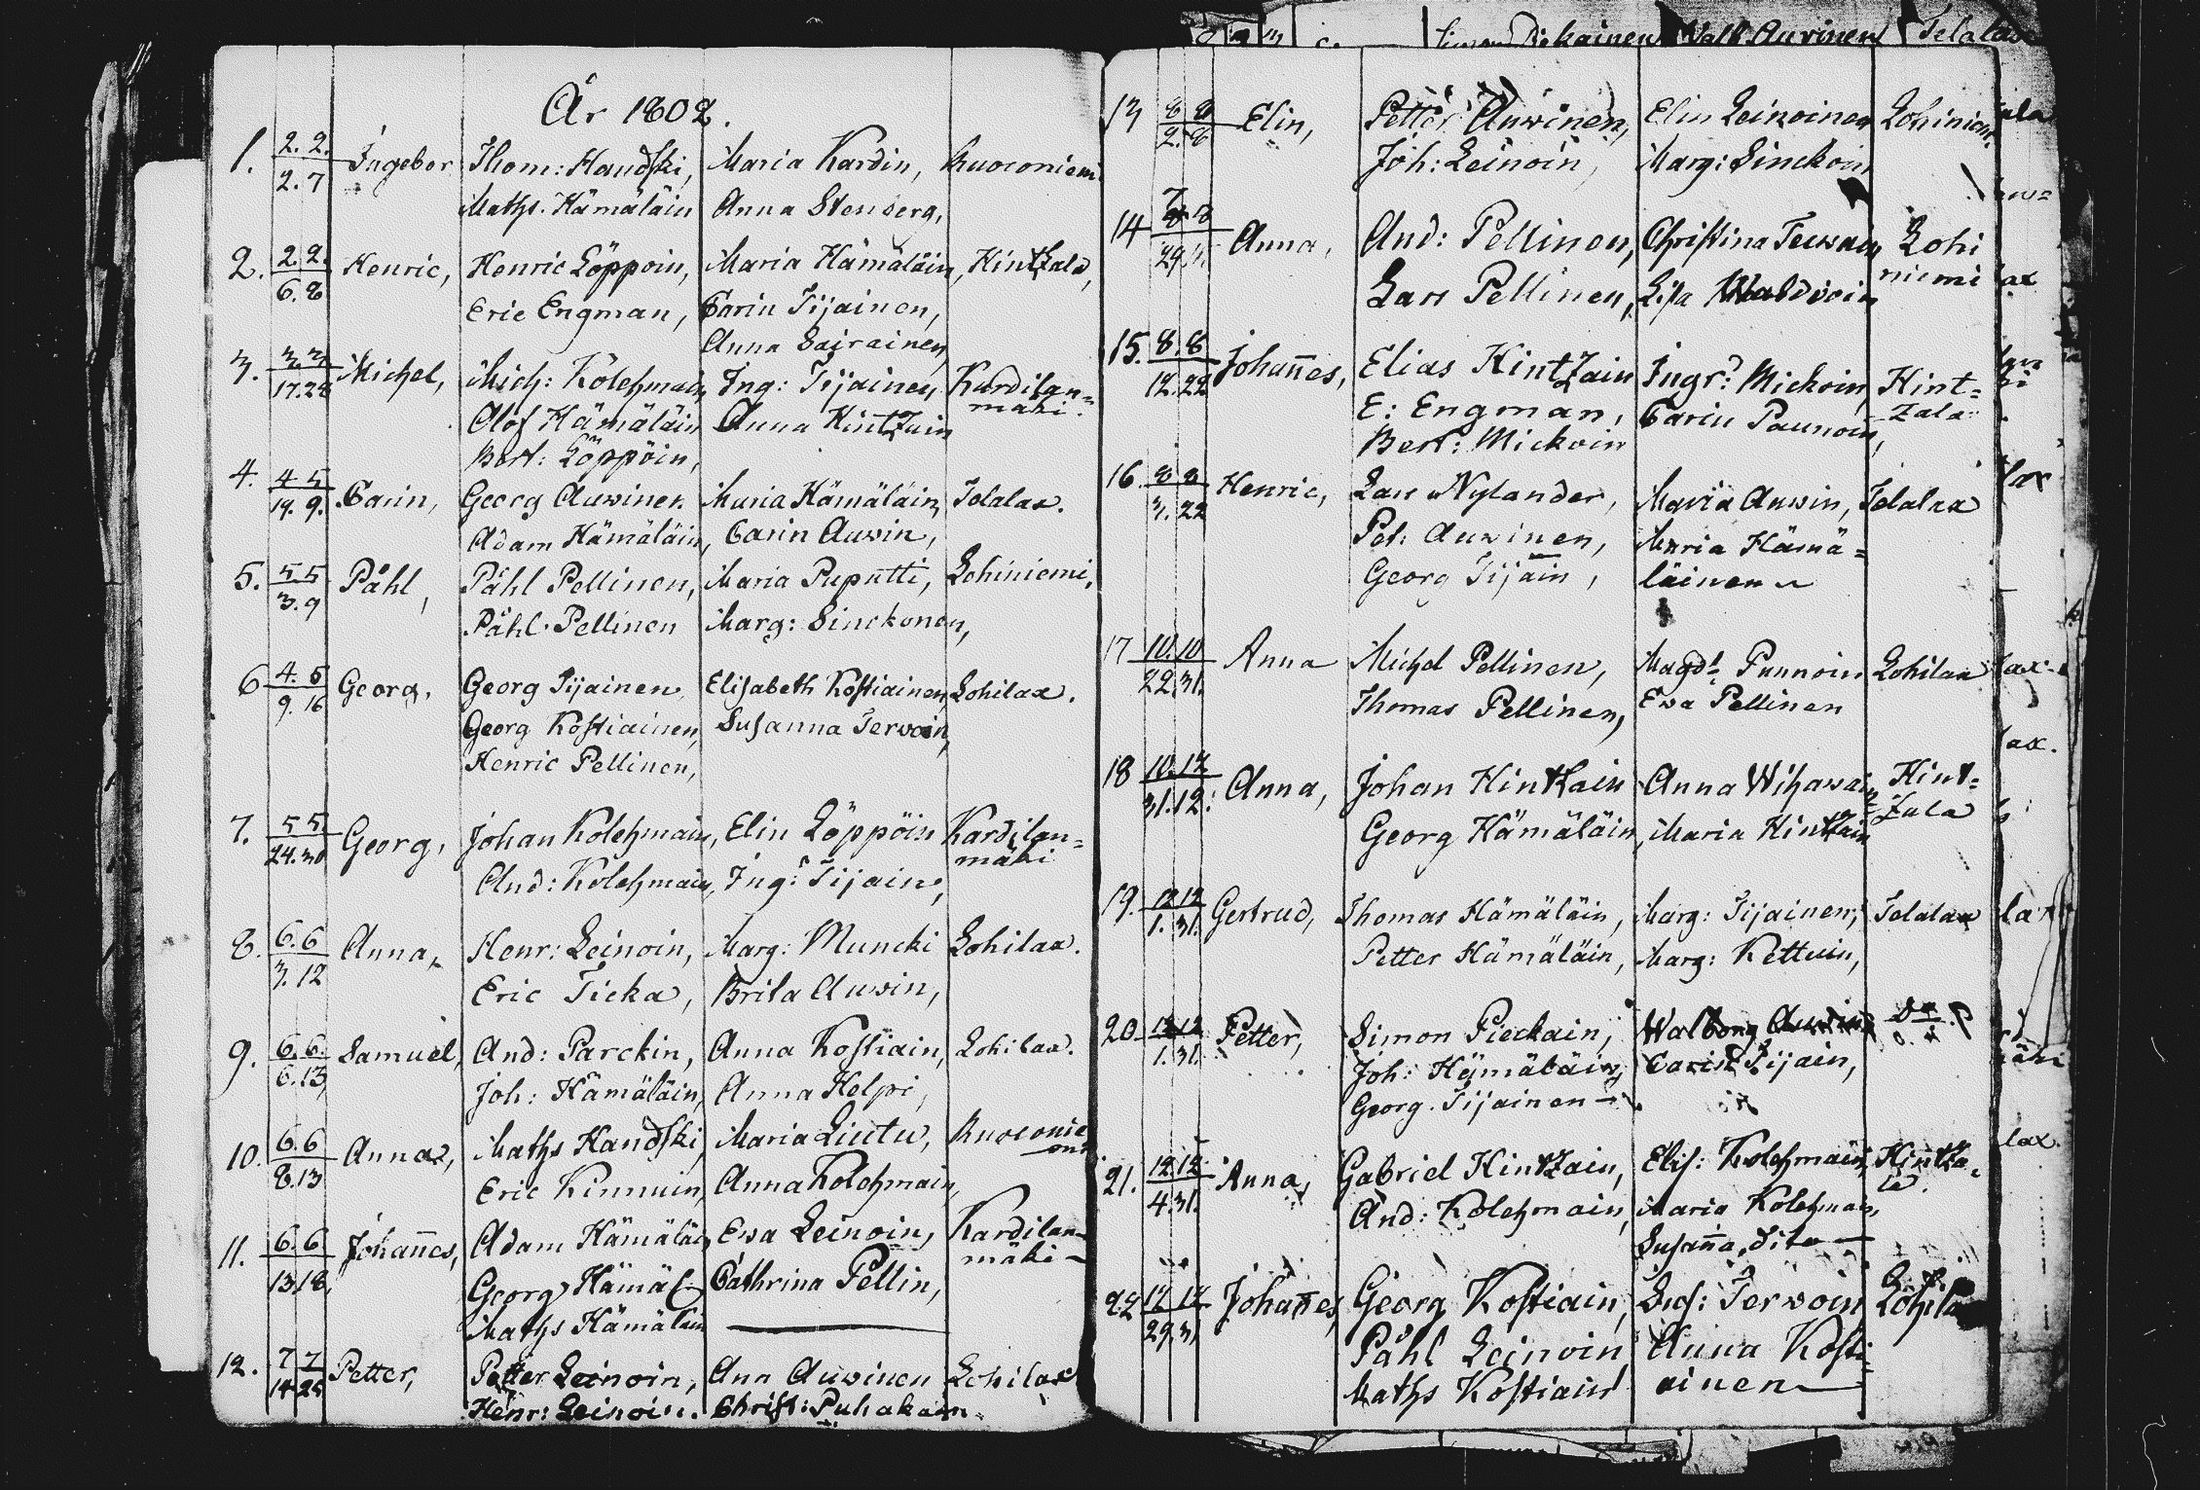 År 1802.
1. 2. 2. Ingebor Thom: Handski, Maria Kardin, Ruoconiemi
2. 7 Maths. Hämäläin Anna Stenberg,
2. 2 2. Henric, Henric Löppöin, Maria Hämäläin, Hintzala,
6. 8 Eric Engman, Carin Tijainen,
Anna Sairainen,
3. 3. 3 Michel, Mich: Kolehmain, Ing: Tijainen, Kardilan=
17. 28 Olof Hämäläin Anna Hintzain mäki.
Bert: Löppöin,
4. 4 5 Carin, Georg Auwinen Maria Hämäläin, Telalax.
19. 9. Adam Hämäläin, Carin Auwin,
5. 5 5 Påhl, Påhl Pellinen, Maria Puputti, Lohiniemi,
3. 9 Påhl. Pellinen Marg: Sinckonen,
6 4. 5 Georg, Georg Tijainen Elisabeth Kostiainen, Lohilax.
9. 16 Georg Kostiainen, Susanna Terwoin,
Henric Pellinen,
7. 5 5 Georg, Johan Kolehmain, Elin Löppöin Kardilan=
24. 30 And: Kolehmain, Ing: Tijaine, mäki
8. 6. 6 Anna, Henr: Leinoin, Marg: Muncki Lohilax.
3. 12 Eric Ticka, Brita Auwin,
9. 6. 6. Samuel, And: Parckin, Anna Kostiain, Lohilax.
6. 13 Joh: Hämäläin, Anna Helpi,
10. 6. 6 Anna, Maths Handski, Maria Liutu, Ruoconie
8. 13 Eric Kinnuin, Anna Kolehmain,
11. 6. 6 Johannes, Adam Hämäläin, Ewa Leinoin, Kardilan-
13 18, Georg Hämäl Cathrina Pellin, mäki —
Maths Hämäläin
12. 7 7 Petter, Petter Leinoin, Ann Auwinen Lohilax
14 25 Henr: Leinoin. Christ: Puhakain
13 8 8 Elin, Petter Auwinen, Elin Leinoinen Lohiniem.
2. 8 Joh: Leinoin, Marg: Sinckoin
14 7 8 Anna, And: Pellinen, Christina Terwain, Lohi
29. Lars Pellinen, Lisa Waldvoin niemi
15. 8. 8 Johannes, Elias Hintzain Ingr: Mickoin, Hint=
12. 22 E: Engman, Carin Paunoin, zala
Bert: Mickoin
16. 8 8 Henric, Lars Nylander, Maria Auwin, Telalax
3. 22 Pet. Auwinen, Maria Hämä=
Georg Tijain, läinen
17 10. 10 Anna Michel Pellinen, Magd: Punnoin Lohilax
22. 31. Thomas Pellinen, Ewa Pellinen
18 10. 12 Anna, Johan Hintzain Anna Wihawain Hint=
31. 12. Georg Hämäläin, Maria Hintzain zala
19. 12 12 Gertrud, Thomas Hämäläin, Marg: Tijainen, Telalax
1. 31. Petter Hämäläin, Marg: Kettuin,
20. 12 12 Petter, Simon Pieckain, Walborg Auwin
1. 31. Joh: Hämäläin, Carin Tijain,
Georg. Tijainen —
21. 12 12 Anna, Gabriel Hintzain, Elis: Kolehmain, Hintza-
4. 31. And: Kolehmain, Maria Kolehmain, la.
Susanna, dito —
22 12 12 Johannes, Georg Kostiain, Sus: Terwoin Lohila
29. 31. Påhl Leinoin, Anna Kosti-
Maths Kostiain ainen —